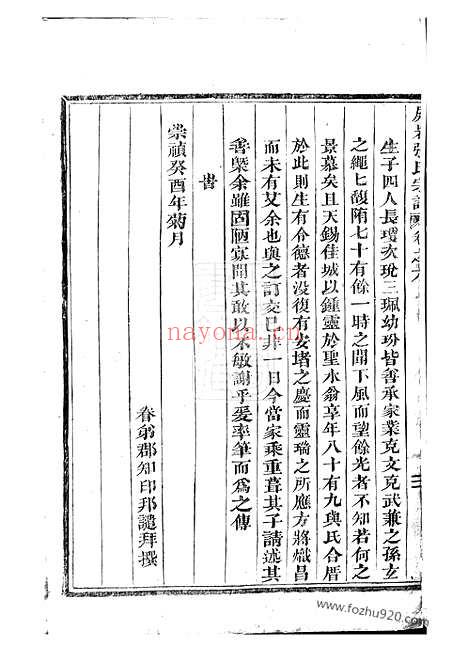 張氏宗譜
生子四人長瓊次玧三珮幼玢皆善承家業克文克武兼之孫立
之繩七馥隋七十有餘一時之聞下風而望餘光者不知若何之
景慕矣且天錫佳城以鍾靈於聖水翁享年八十有九與氏合厝
於此則生有令德者没復有安堵之慶而靈瑞之所應方將熾昌
而未有艾余也與之訂交已非一日今當家乘重葺其子請述其
善槩余雖固陋寡聞其敢以不敏謝乎爰率筆而為之傳
旹
崇禎癸酉年菊月
春弟郡知印邦譴拜撰
nayona.cn
www.fozhu920.com